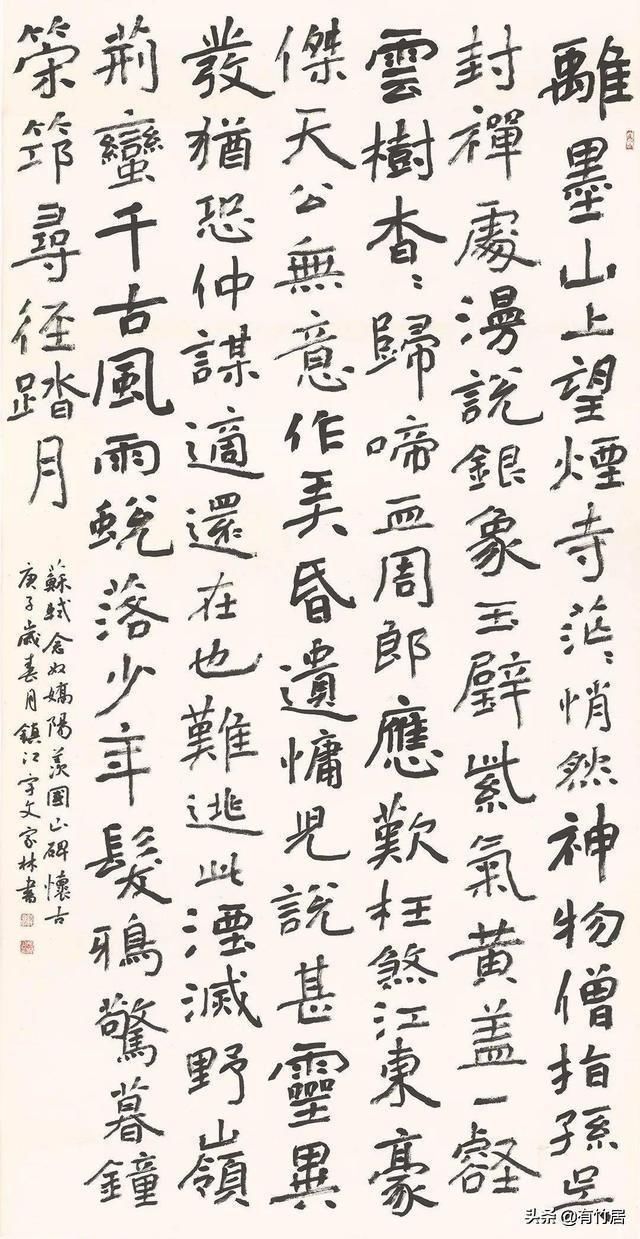 離墨山上望煙寺茫〻悄然神物僧指孫吳
封禪處漫說銀象玉璧紫氣黃蓋一壑
雲樹杳〻歸啼血周郎應歎枉煞江東豪
傑天公無意作弄昏遺慵兒說甚靈異
發猶恐仲謀適還在也難逃此湮滅野山嶺
荊蠻千古風雨蛻落少年髮鴉驚暮鐘
策筇尋徑踏月
蘇軾念奴嬌陽羨國山碑懷古
庚子歲春月鎮江宇文家林書
头条 @有竹居